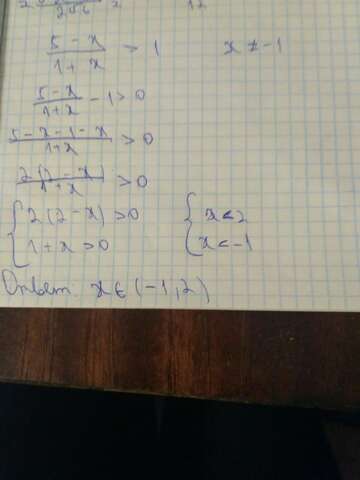 5 - x / 1 + x > 1 x ≠ -1
5 - x / 1 + x - 1 > 0
5 - x - 1 - x / 1 + x > 0
2(2 - x) / 1 + x > 0
{ 2(2 - x) > 0 { x < 2
1 + x > 0 x < -1
Ответ: x ∈ (-1, 2)